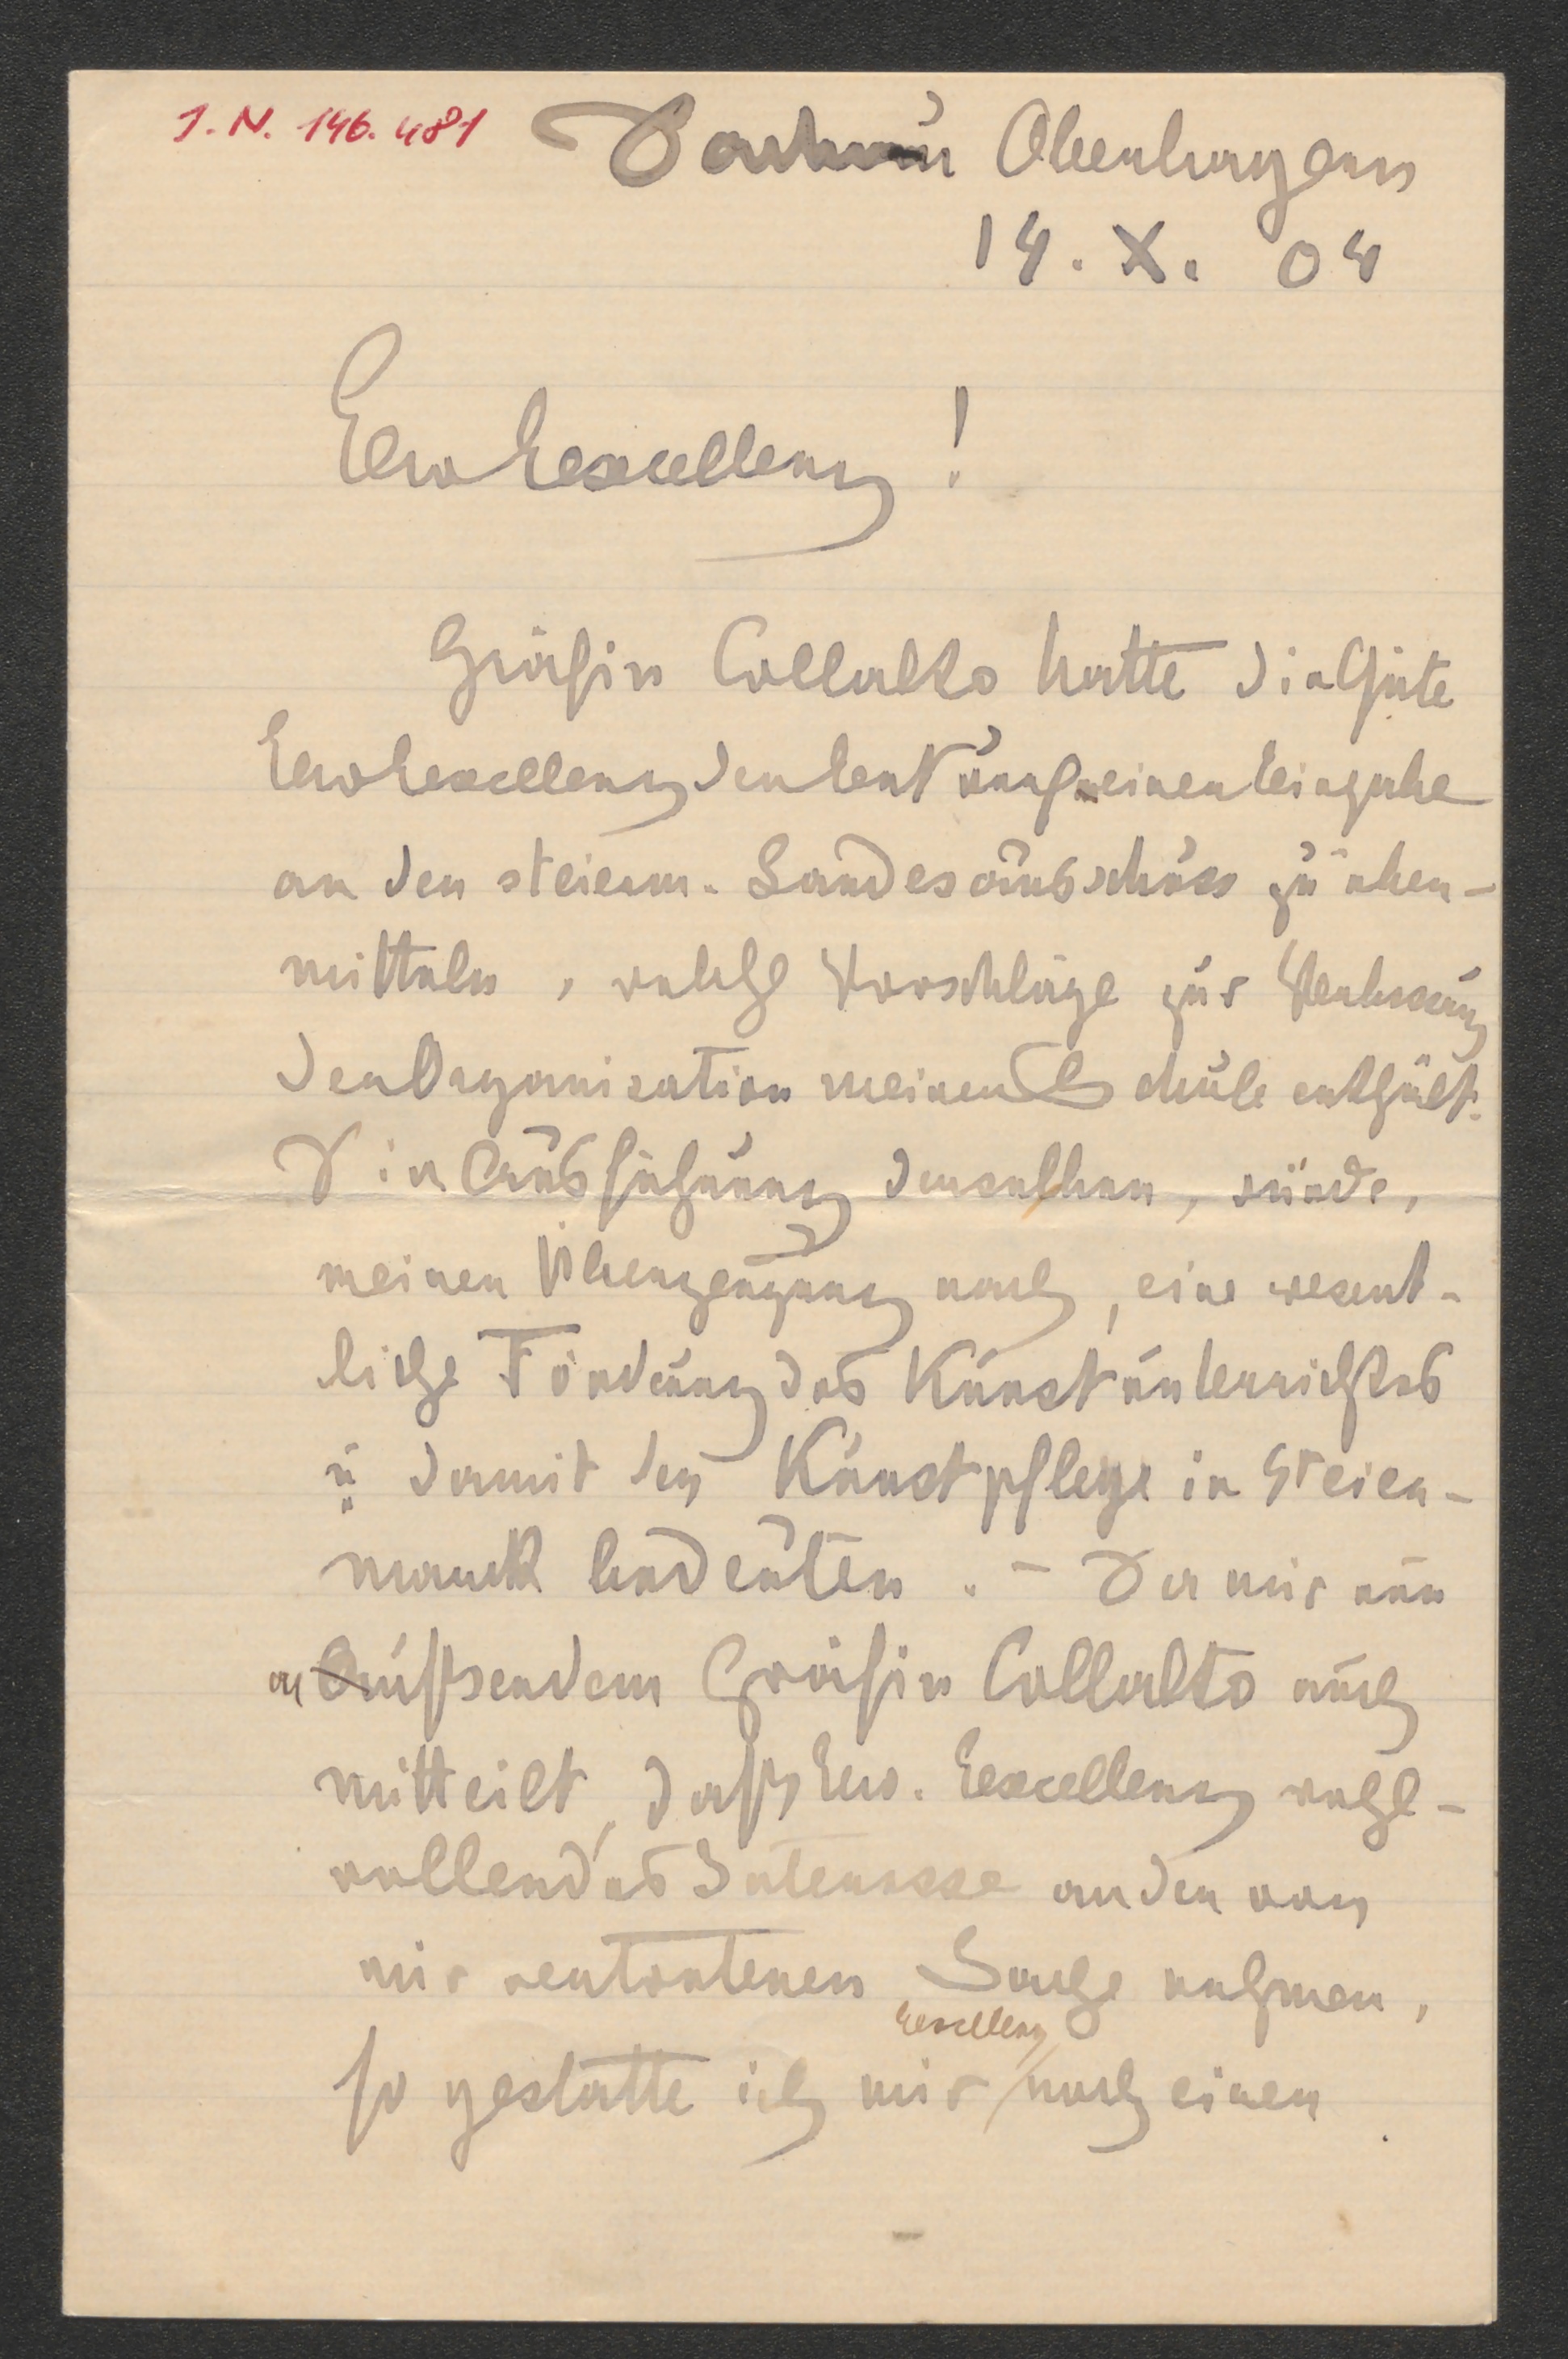 I.N. 146.481
Dachau Oberbayern
14. X. 04
Euer Excellenz!
Gräfin Collalto hatte die Güte
Euer Excellenz den Entwurf meiner Eingabe
an den steierm. Landesausschuss zu über-
mitteln, welche Vorschläge zur Verbesserung
der Organisation meiner Schule enthält.
Die Ausführung derselben, würde,
meiner Überzeugung nach, eine wesent-
liche Förderung des Kunstunterrichtes
u. damit der Kunstpflege in Steier-
mark bedeuten. – Da mir nun
Gräfin Collalto auch
mitteilt, daß Euer. Excellenz wohl-
wollendes Interesse an der von
mir vertretenen Sache nehmen,
Excellenz
so gestatte ich mir noch einen